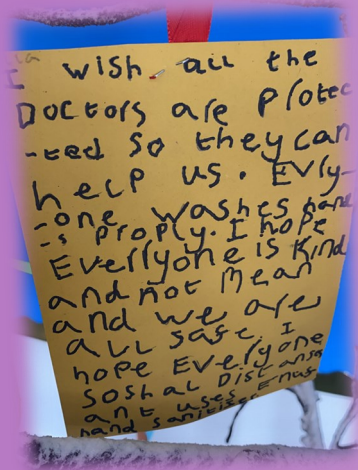 I wish all the
Doctors are Protec
-ted so they can
help us. Evry-
-one washes hand
-s proply. I hope
Everyone is Kind
and not Mean
and we are
all safe. I
hope Everyone
soshal Distanses
ant uses Enuf
hand sanitiser